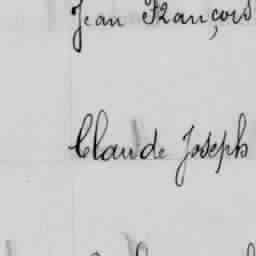 Jean François
Claude Joseph